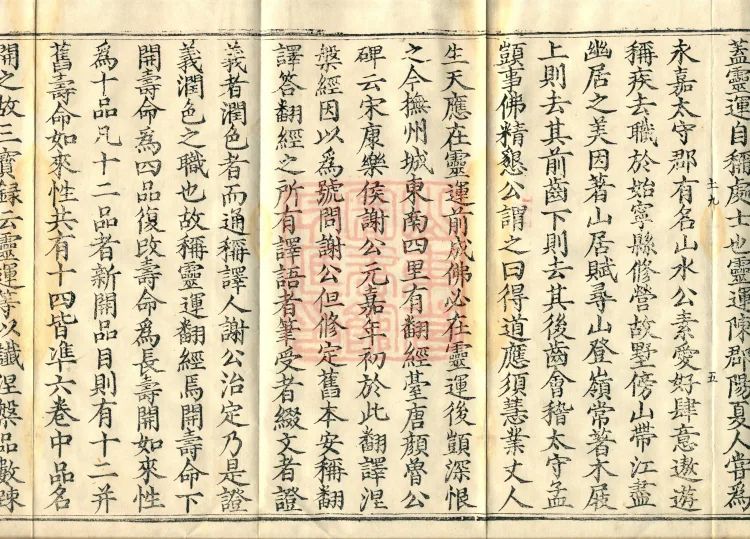 蓋靈運自稱處士也靈運陳郡陽夏人甞為
永嘉太守郡有名山水公素愛好肆意遨遊
士九
五
稱疾去職於始寧縣修營故墅傍山帶江盡
幽居之美因著山居賦尋山登嶺常著木屐
上則去其前齒下則去其後齒會稽太守孟
顗事佛精懇公謂之曰得道應須慧業丈人
生天應在靈運前成佛必在靈運後顗深恨
之今撫州城東南四里有翻經臺唐顏魯公
碑云宋康樂侯謝公元嘉年初於此翻譯涅
槃經因以為號問謝公但修定舊本安稱翻
譯答翻經之所有譯語者筆受者綴文者證
義者潤色者而通稱譯人謝公治定乃是證
義潤色之職也故稱靈運翻經焉開壽命下
開壽命為四品復改壽命為長壽開如來性
為十品凡十二品者新開品目則有十二并
舊壽命如來性共有十四皆準六卷中品名
開之故三寶録云靈運等以讖涅槃品數踈